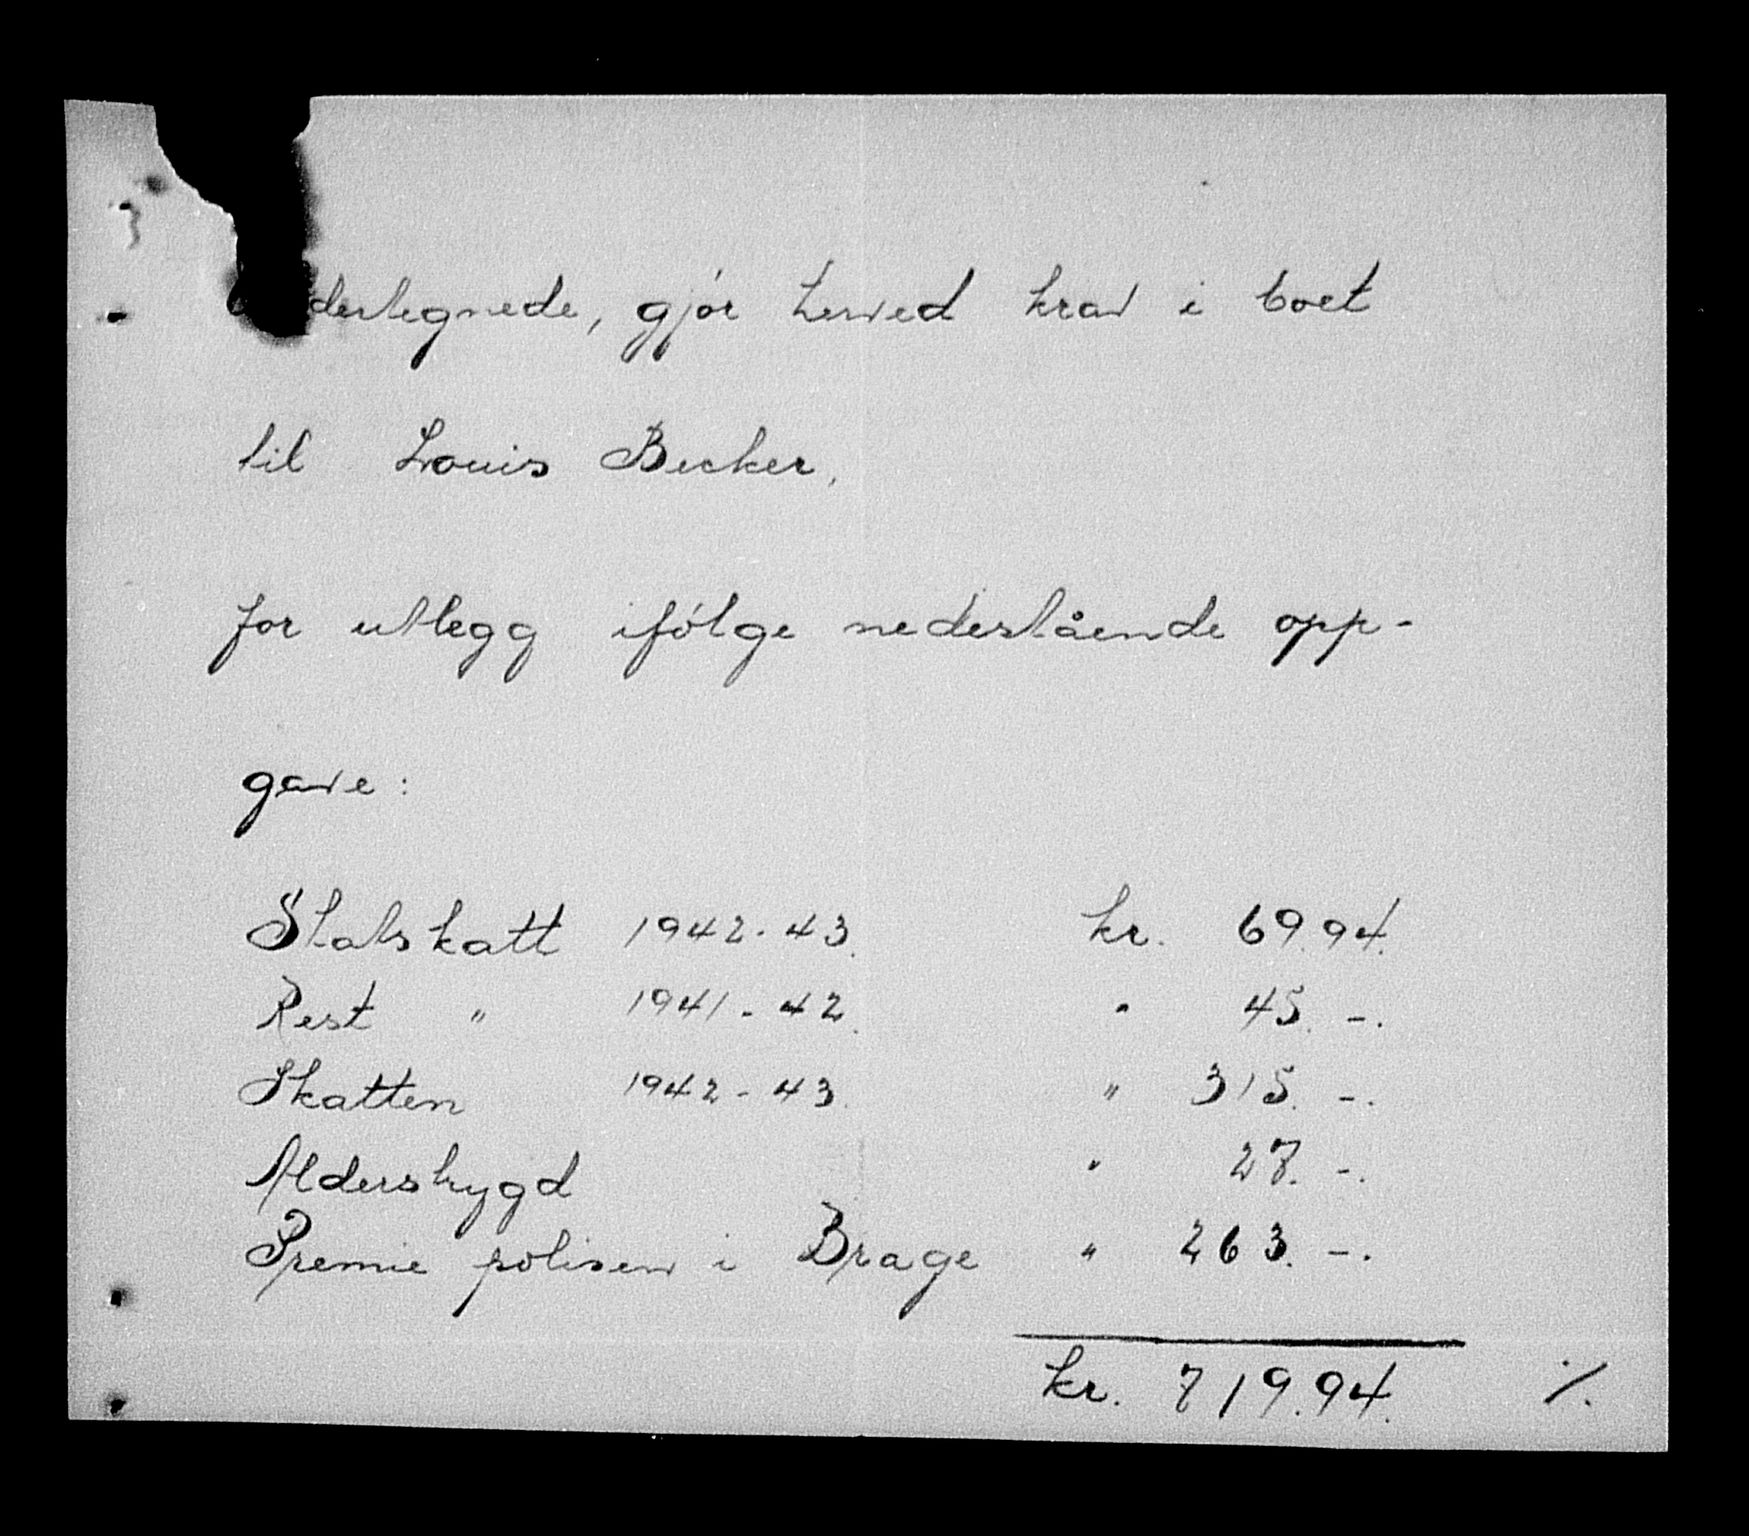 Undertegnede, gjør herved krav i boet
til Louis Becker,
for utlegg ifølge nedestående opp-
gave:
Statsskatt 1942-43. kr. 69.94.
Rest " 1941-42. " 45.-.
Skatten 1942-43. " 315.-.
Alderstrygd " 27.-.
Premie polisen i Brage " 263.-.
kr. 719.94. ./.